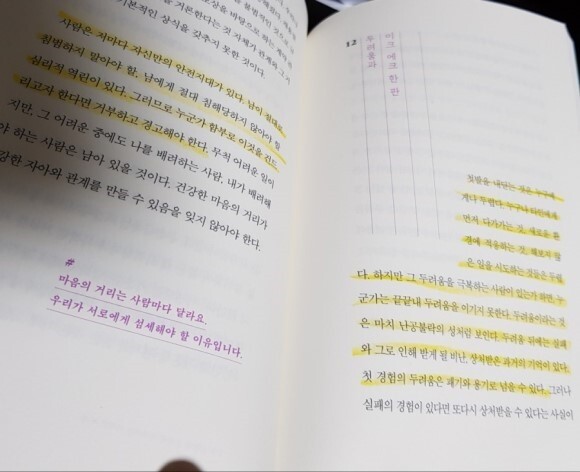 보상을 바탕으로 하는
을 거론한다는 것 자체가 관계와
기본적인 상식을 갖추지 못한 것이다.
사람은 저마다 자신만의 안전지대가 있다. 남이 절대로
침범하지 말아야 할, 남에게 절대 침해당하지 않아야 할
심리적 역린이 있다. 그러므로 누군가 함부로 이것을 건드
리고자 한다면 거부하고 경고해야 한다. 무척 어려운 일이
지만, 그 어려운 중에도 나를 배려하는 사람, 내가 배려해
야 하는 사람은 남아 있을 것이다. 건강한 마음의 거리가
강한 자아와 관계를 만들 수 있음을 잊지 않아야 한다.
#
마음의 거리는 사람마다 달라요.
우리가 서로에게 섬세해야 할 이유입니다.
12
두려움과
이크 에크 한 판
첫발을 내딛는 것은 누구에
게나 두렵다. 누군가 타인에게
먼저 다가가는 것, 새로운 환
경에 적응하는 것, 해보지 않
은 일을 시도하는 것들은 두렵
다. 하지만 그 두려움을 극복하는 사람이 있는가 하면, 누
군가는 끝끝내 두려움을 이기지 못한다. 두려움이라는 것
은 마치 난공불락의 성처럼 보인다. 두려움 뒤에는 실패
와 그로 인해 받게 될 비난, 상처받은 과거의 기억이 있다.
첫 경험의 두려움은 패기와 용기로 넘을 수 있다. 그러나
실패의 경험이 있다면 또다시 상처받을 수 있다는 사실이